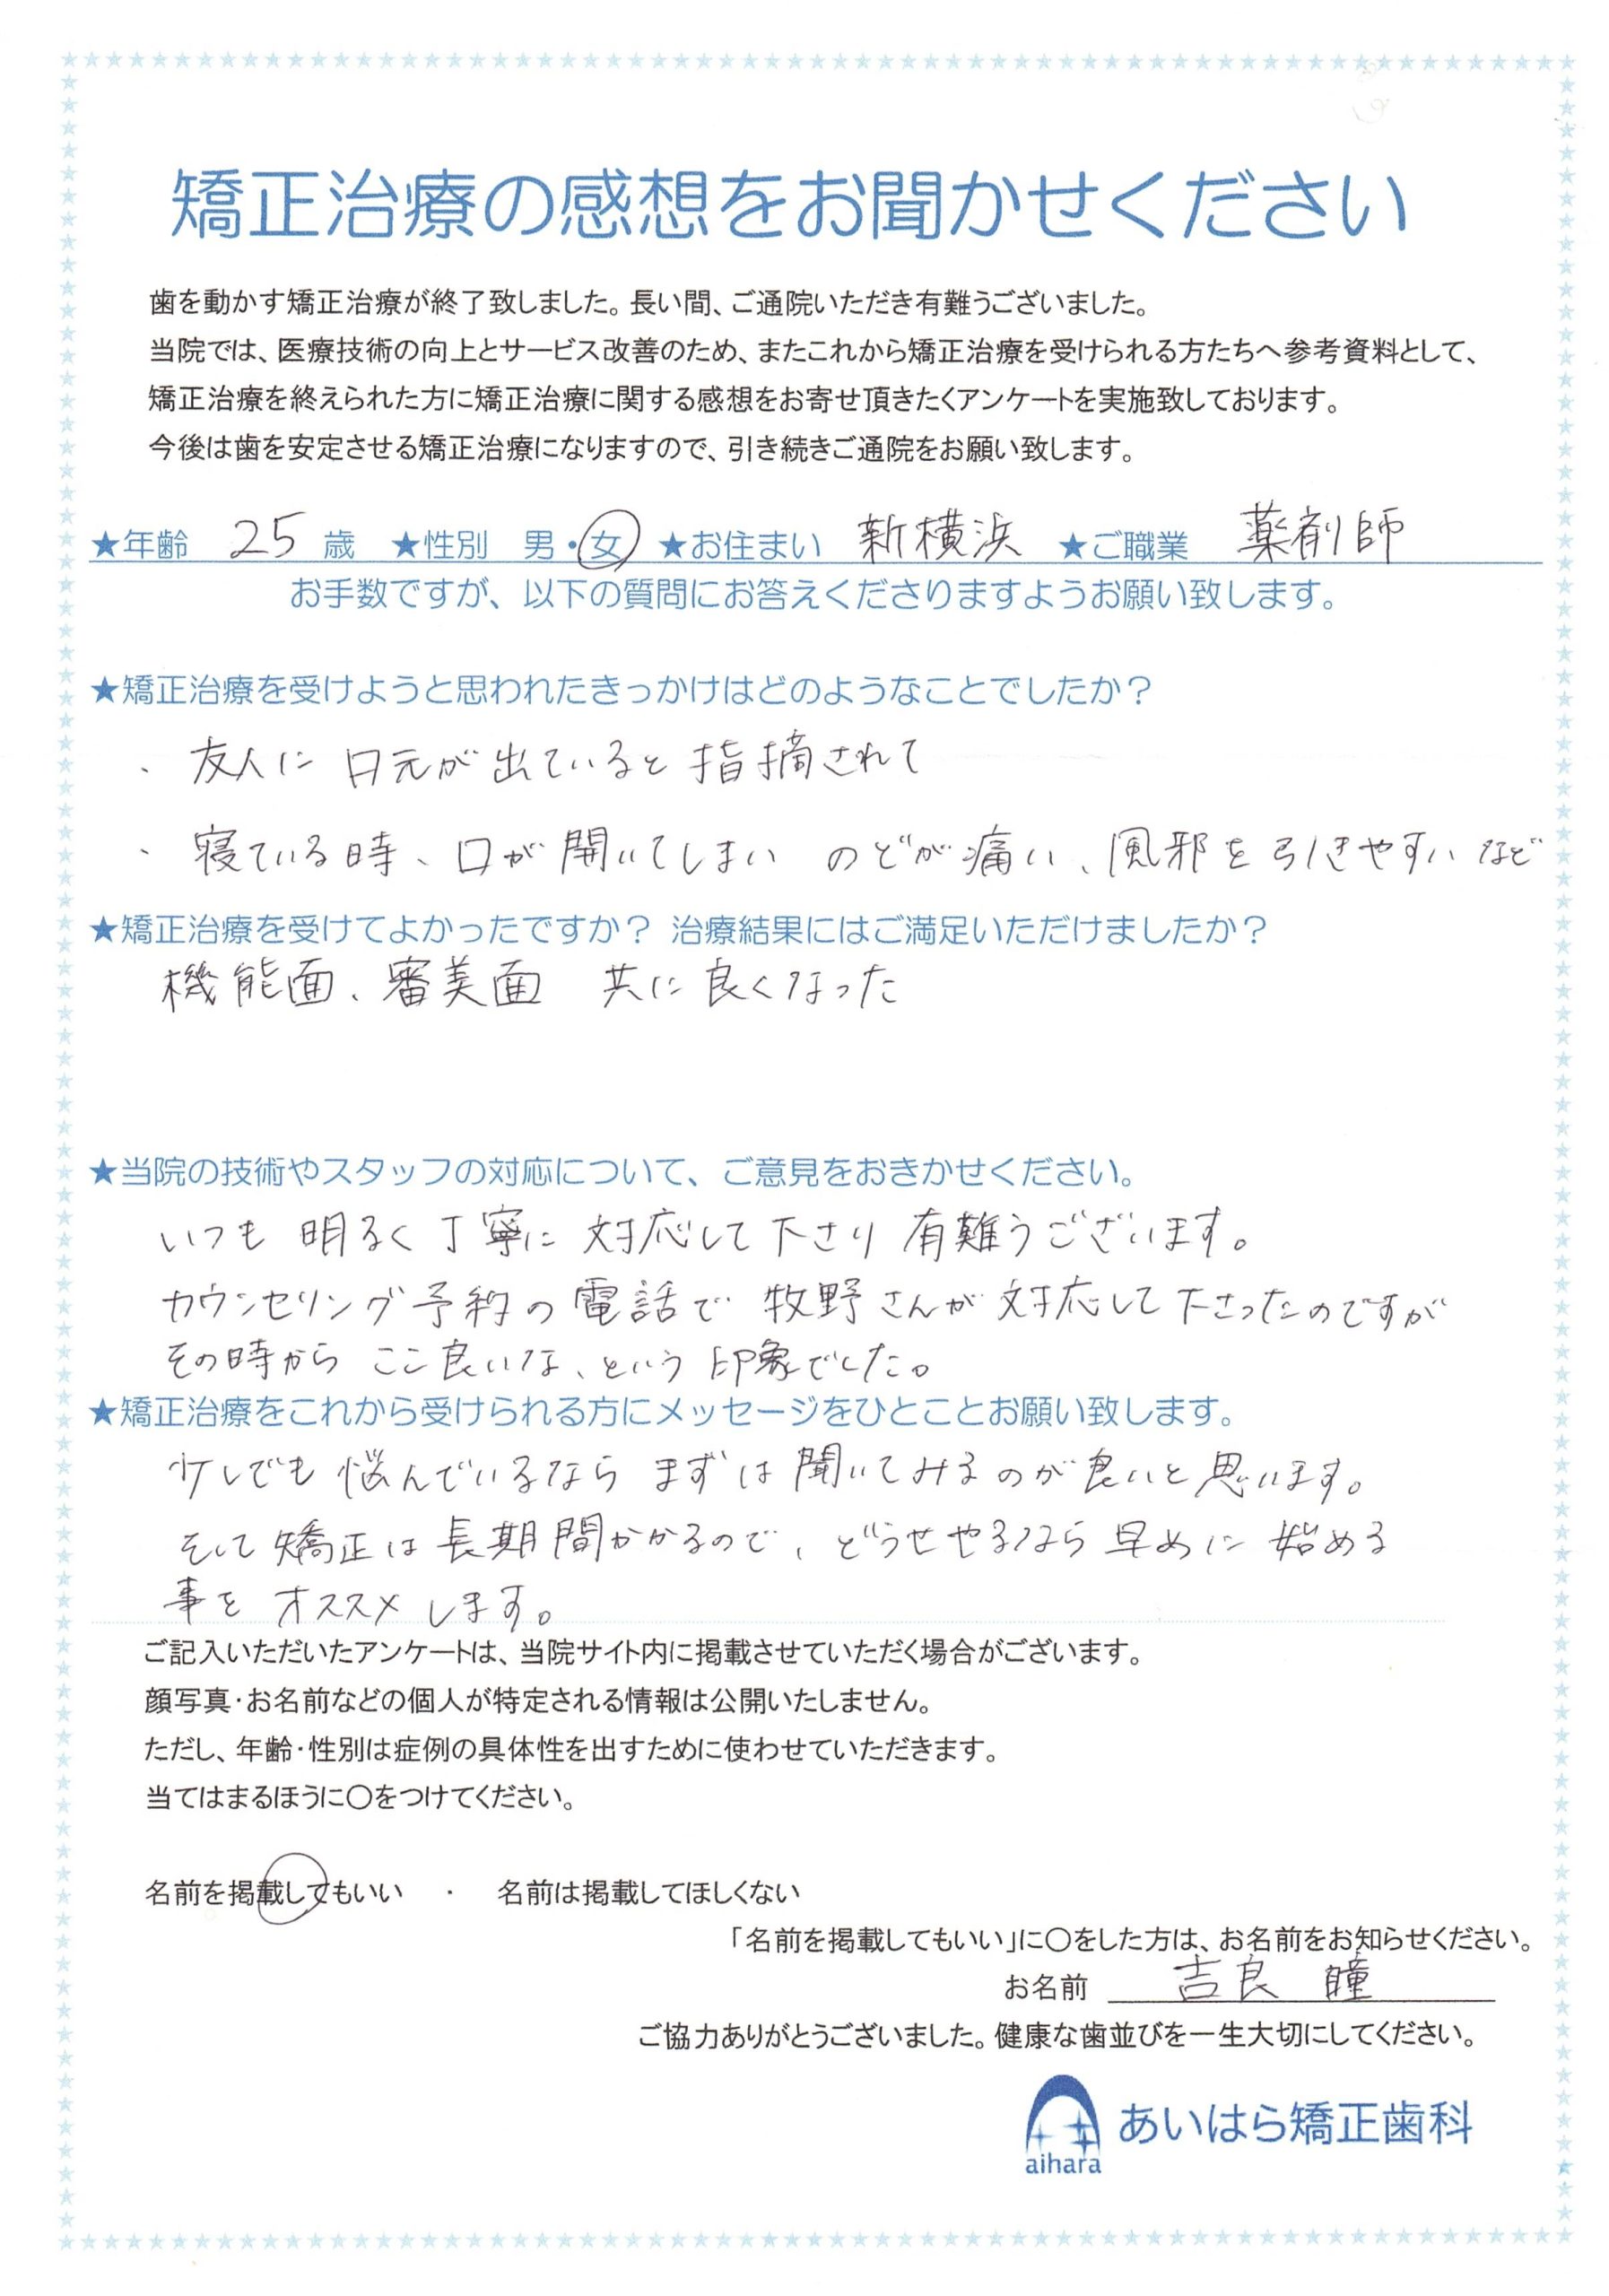 矯正治療の感想をお聞かせください
歯を動かす矯正治療が終了致しました。長い間、ご通院いただき有難うございました。
当院では、医療技術の向上とサービス改善のため、またこれから矯正治療を受けられる方たちへ参考資料として、
矯正治療を終えられた方に矯正治療に関する感想をお寄せ頂きたくアンケートを実施致しております。
今後は歯を安定させる矯正治療になりますので、引き続きご通院をお願い致します。
★年齢 25 歳 ★性別 男・女 ★お住まい 新横浜 ★ご職業 薬剤師
お手数ですが、以下の質問にお答えくださりますようお願い致します。
★矯正治療を受けようと思われたきっかけはどのようなことでしたか？
・友人に口元が出ていると指摘されて
・寝ている時、口が開いてしまい のどが痛い、風邪を引きやすい など
★矯正治療を受けてよかったですか？ 治療結果にはご満足いただけましたか？
機能面、審美面 共に良くなった
★当院の技術やスタッフの対応について、ご意見をおきかせください。
いつも明るく丁寧に対応して下さり有難うございます。
カウンセリング予約の電話で牧野さんが対応して下さったのですが
その時からここ良いな、という印象でした。
★矯正治療をこれから受けられる方にメッセージをひとことお願い致します。
少しでも悩んでいるならまずは聞いてみるのが良いと思います。
そして矯正は長期間かかるので、どうせやるなら早めに始める
事をオススメします。
ご記入いただいたアンケートは、当院サイト内に掲載させていただく場合がございます。
顔写真・お名前などの個人が特定される情報は公開いたしません。
ただし、年齢・性別は症例の具体性を出すために使わせていただきます。
当てはまるほうに〇をつけてください。
名前を掲載してもいい ・ 名前は掲載してほしくない
「名前を掲載してもいい」に〇をした方は、お名前をお知らせください。
お名前 吉良 瞳
ご協力ありがとうございました。健康な歯並びを一生大切にしてください。
あいはら矯正歯科
aihara